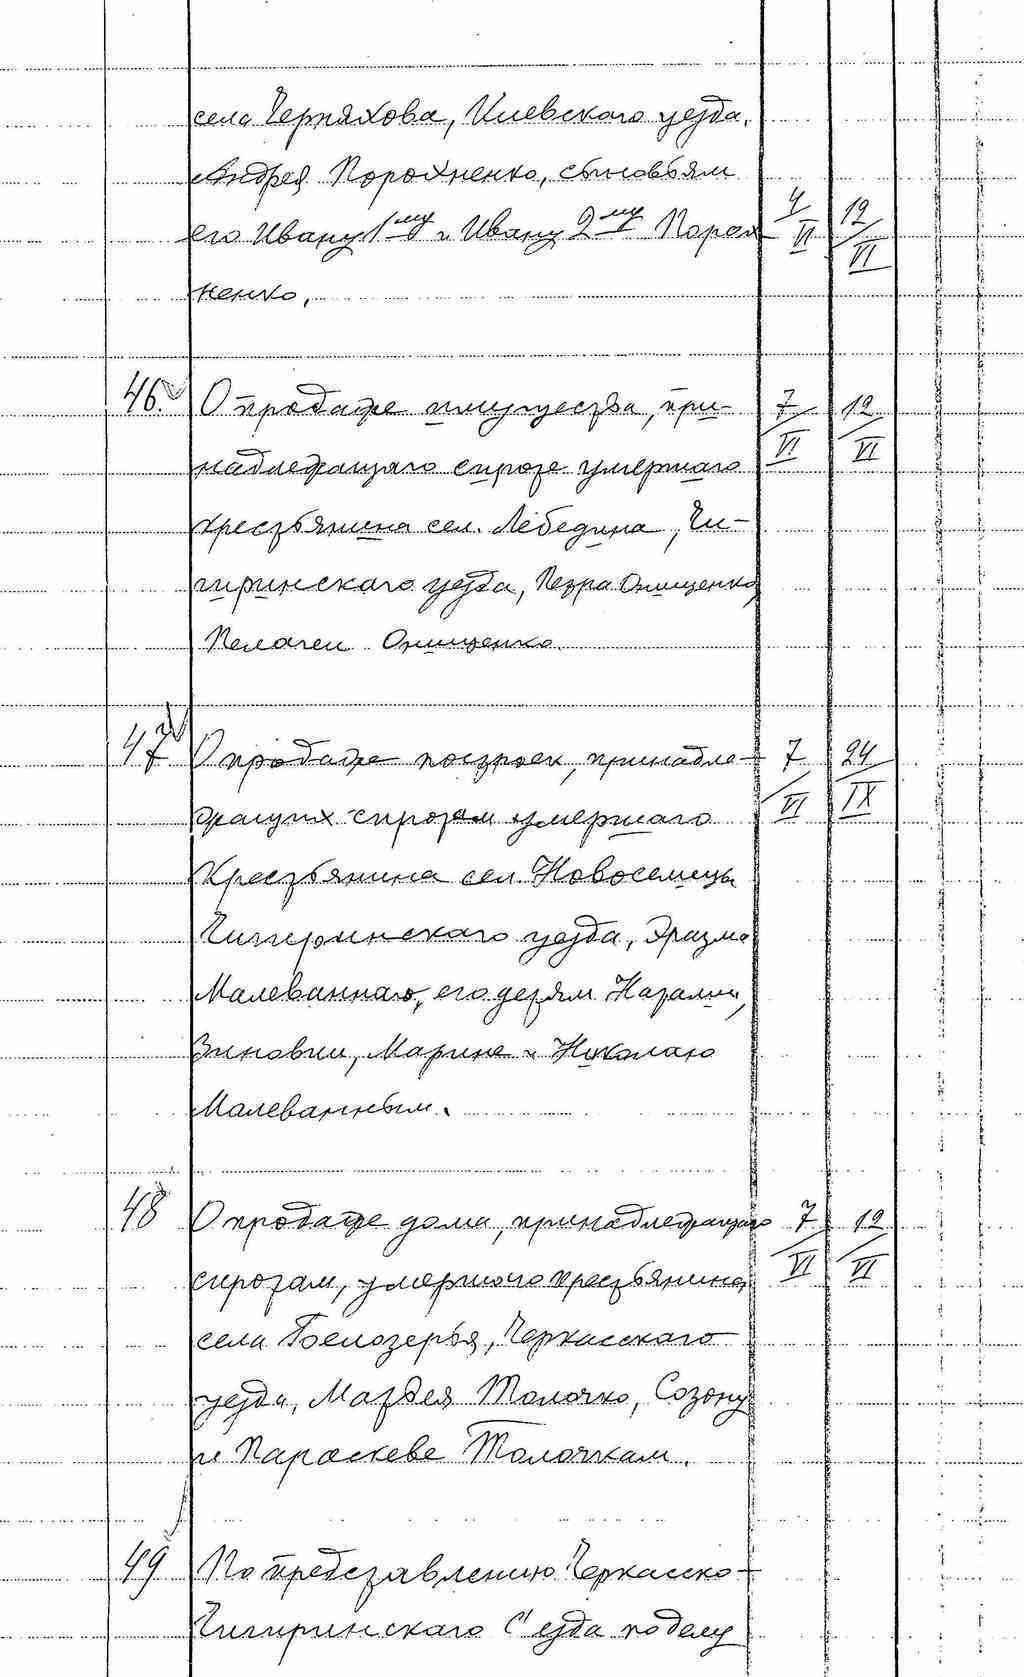 села Черняхова, Киевскаго уезда,
Андрея Порохненко, сыновьям
его Ивану 1му и Ивану 2му Порох
4/VI 12/VI
ненко.
46. О продаже имущества, при-
7/VI 12/VI
надлежащаго сироте умершаго
крестьянина сел. Лебедина, Чи-
гиринскаго уезда, Петра Онищенко,
Пелагеи Онищенко.
47 О продаже построек, принадле-
7/VI 24/IX
жащих сиротам умершаго
Крестьянина сел. Новоселицы
Чигиринскаго уезда, Эразма
Малеваннаго, его детям Наталии,
Зиновии, Марине и Николаю
Малеванным.
48 О продаже дома, принадлежащаго
7/VI 12/VI
сиротам, умершаго крестьянина
села Белозерья, Черкасскаго
уезда, Матвея Толочко, Созону
и Параскеве Толочкам.
49 По представлению Черкасско-
Чигиринскаго Съезда по делу